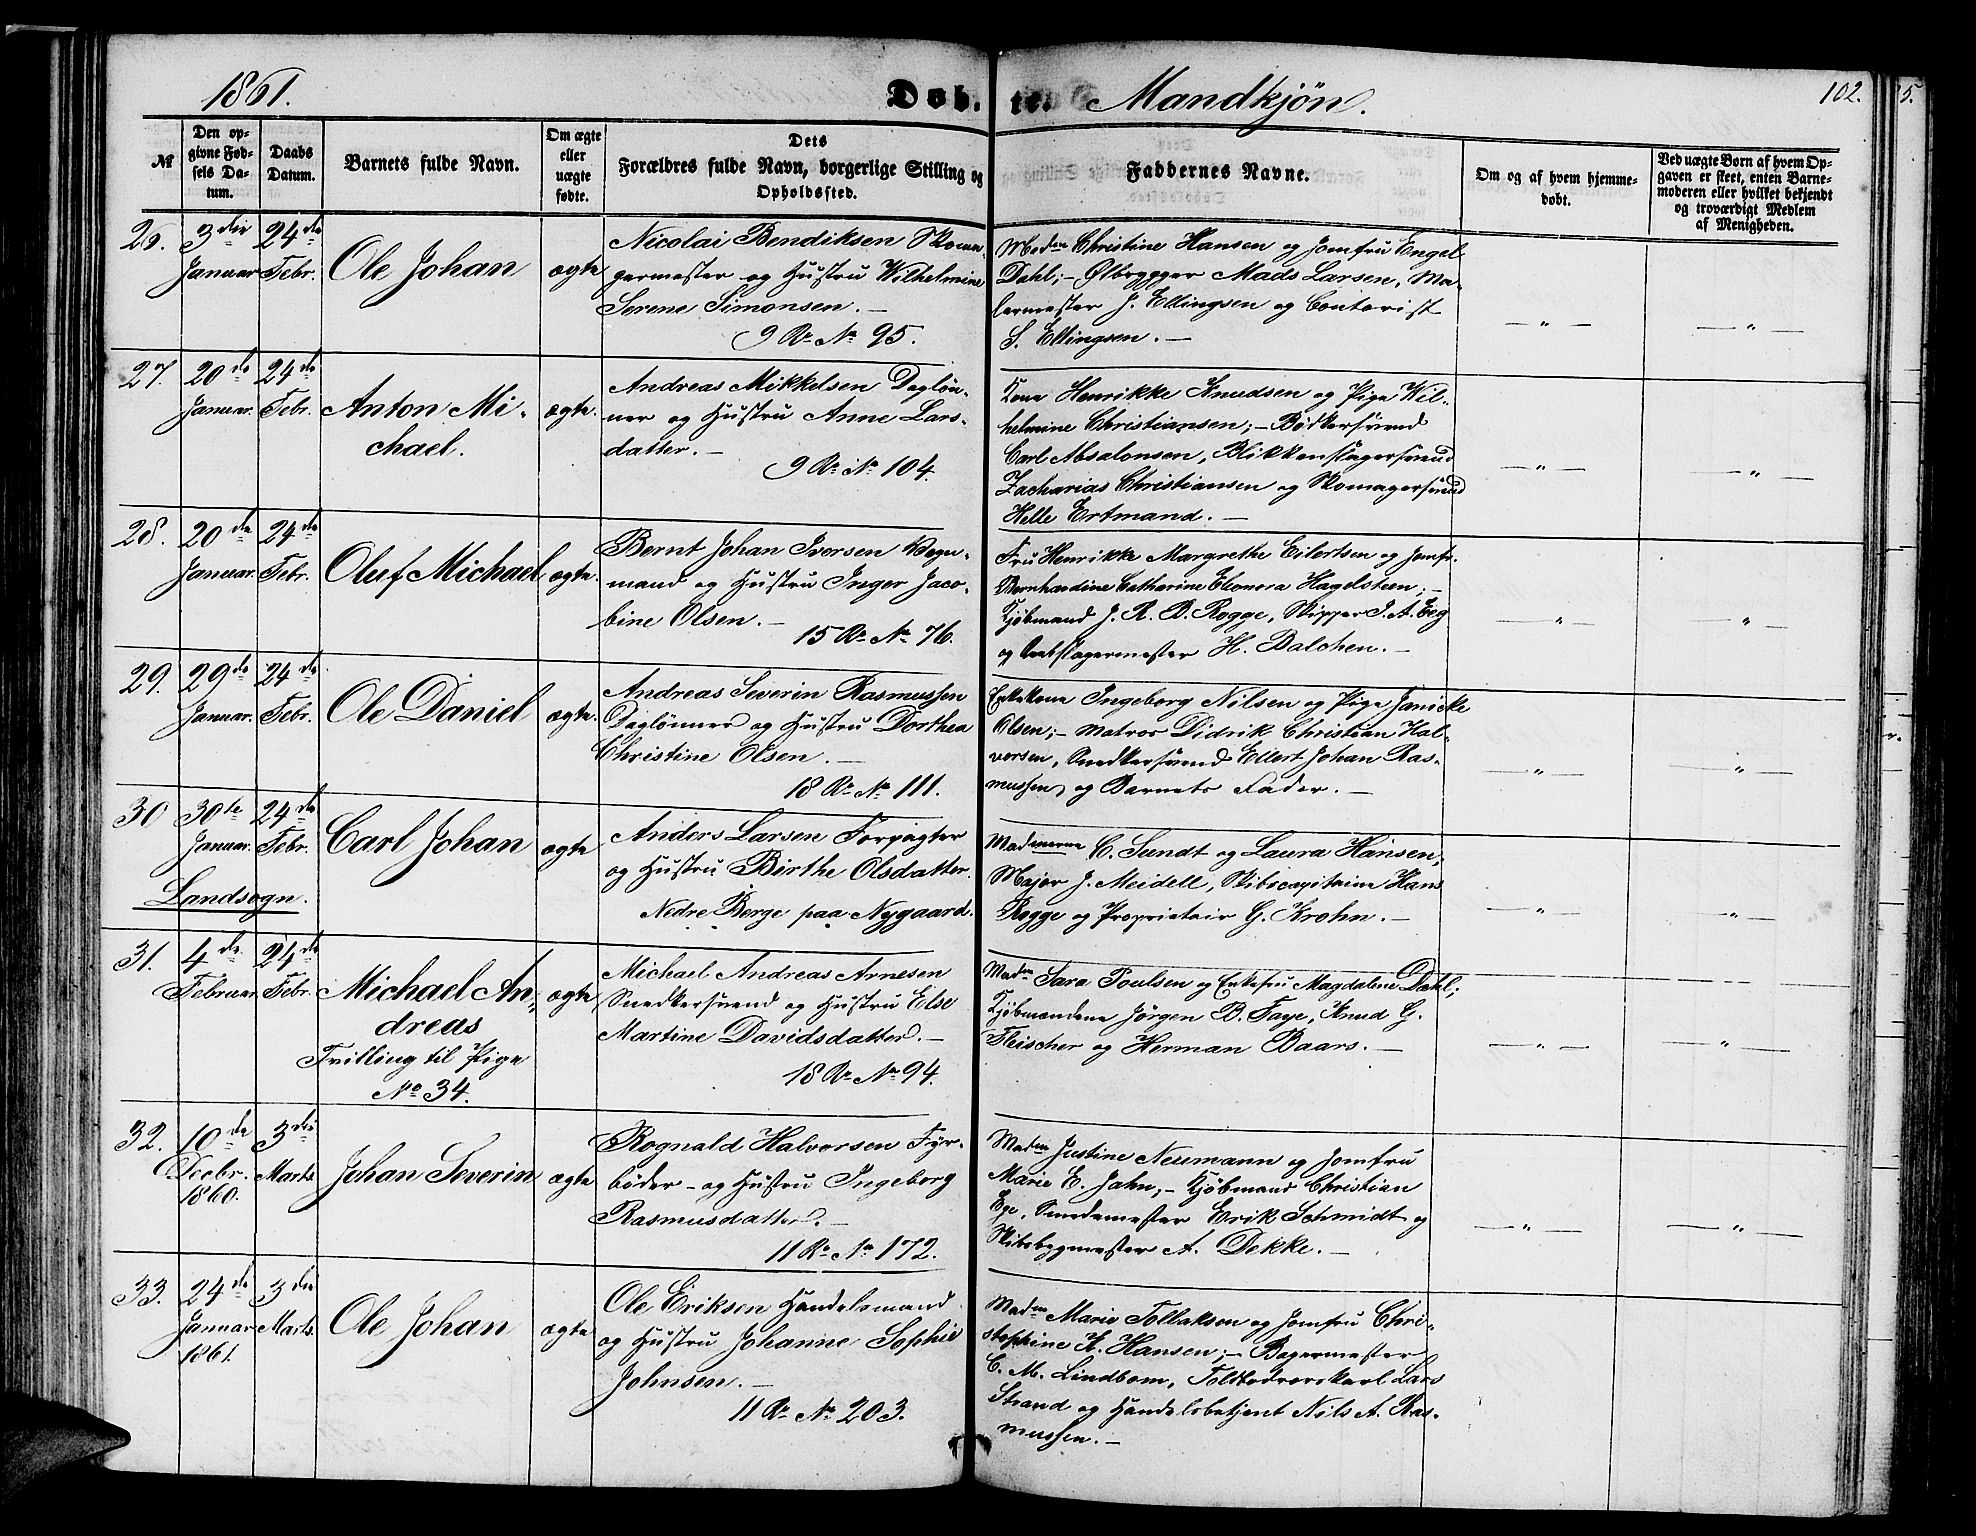 1861.
Døb- te. Mandkjøn.
102.
5.
№
Den op-
givne Fød-
sels Da-
tum.
Daabs
Datum.
Barnets fulde Navn.
Om ægte
eller
uægte
fødte.
Dets
Forældres fulde Navn, borgerlige Stilling og
Opholdssted.
Faddernes Navne.
Om og af hvem hjemme-
døbt.
Ved uægte Børn af hvem Op-
gaven er skeet, enten Barne-
moderen eller hvilket bekjendt
og troværdigt Medlem
af Menigheden.
26.
3die
Januar
24de
Febr.
Ole Johan
ægte
Nicolai Bendiksen Skoma-
germester og Hustru Wilhelmine
Serene Simonsen. —
9 R. No 95.
Madm Christine Hansen og Jomfru Engel
Dahl; – Ølbrygger Mads Larsen, Ma-
lermester J. Ellingsen og Contorist
S. Ellingsen. —
— " —
— " —
27.
20de
Januar.
24de
Febr.
Anton Mi-
chael.
ægte.
Andreas Mikkelsen Dagløn-
ner og Hustru Anne Lars-
datter. —
9 R. No 104.
Kone Henrikke Knudsen og Pige Wil-
helmine Christiansen; – Bødkersvend
Carl Absalonsen, Blikkenslagersvend
Zacharias Christiansen og Skomagersvend
Helle Ertmand. —
— " —
— " —
28.
20de
Januar.
24de
Febr.
Oluf Michael
ægte.
Bernt Johan Iversen Vogn-
mand og Hustru Inger Jaco-
bine Olsen. —
15 R. No 76.
Fru Henrikke Margrethe Eilertsen og Jomfr.
Bernhardine Catharine Eleonora Hagelsteen; –
Kjøbmand J. R. B. Rogge, Skipper J. A. Eeg
og Rebslagermester H. Balchen. —
— " —
— " —
29.
29de
Januar.
24de
Febr.
Ole Daniel
ægte.
Andreas Severin Rasmussen
Daglønner og Hustru Dorthea
Christine Olsen. —
18 R. No 111.
Enkekone Ingeborg Nilsen og Pige Janicke
Olsen; – Matros Didrik Christian Hal-
vorsen, Snedkersvend Ellert Johan Ras-
mussen og Barnets Fader. —
— " —
— " —
30
30te
Januar.
24de
Febr.
Landsogn.
Carl Johan
ægte
Anders Larsen Forpagter
og Hustru Birthe Olsdatter.
Nedre Berge paa Nygaard.
Madmerne C. Sundt og Laura Hansen,
Major J. Meidell, Skibscapitaine Hans
Rogge og Proprietair G. Krohn. —
— " —
— " —
31.
4de
Februar
24de
Febr.
Michael An-
dreas
Tvilling til Pige
No 34.
ægte
Michael Andreas Arnesen
Snedkersvend og Hustru Else
Martine Davidsdatter. —
18 R. No 94.
Madm Sara Poulsen og Enkefru Magdalene Dahl;
Kjøbmændene Jørgen B. Faye, Knud G.
Fleischer og Herman Baars. —
— " —
— " —
32.
10de
Decbr.
1860.
3die
Marts.
Johan Severin
ægte
Rognald Halvorsen Fyr-
bøder – og Hustru Ingeborg
Rasmusdatter. —
11 R. No 172.
Madm Justine Neumann og Jomfru
Marie E. Jahn; – Kjøbmand Christian
Ege, Smedemester Erik Schmidt og
Skibsbygmester A. Dekke. —
— " —
— " —
33.
24de
Januar
1861.
3die
Marts.
Ole Johan
ægte
Ole Eriksen Handelsmand
og Hustru Johanne Sophie
Johnsen. —
11 R. No 203.
Madm Marie Tollaksen og Jomfru Chri-
stophine H. Hansen; – Bagermester
C. M. Lindbom, Toldbodroerskarl Lars
Strand og Handelsbetjent Nils A. Ras-
mussen. —